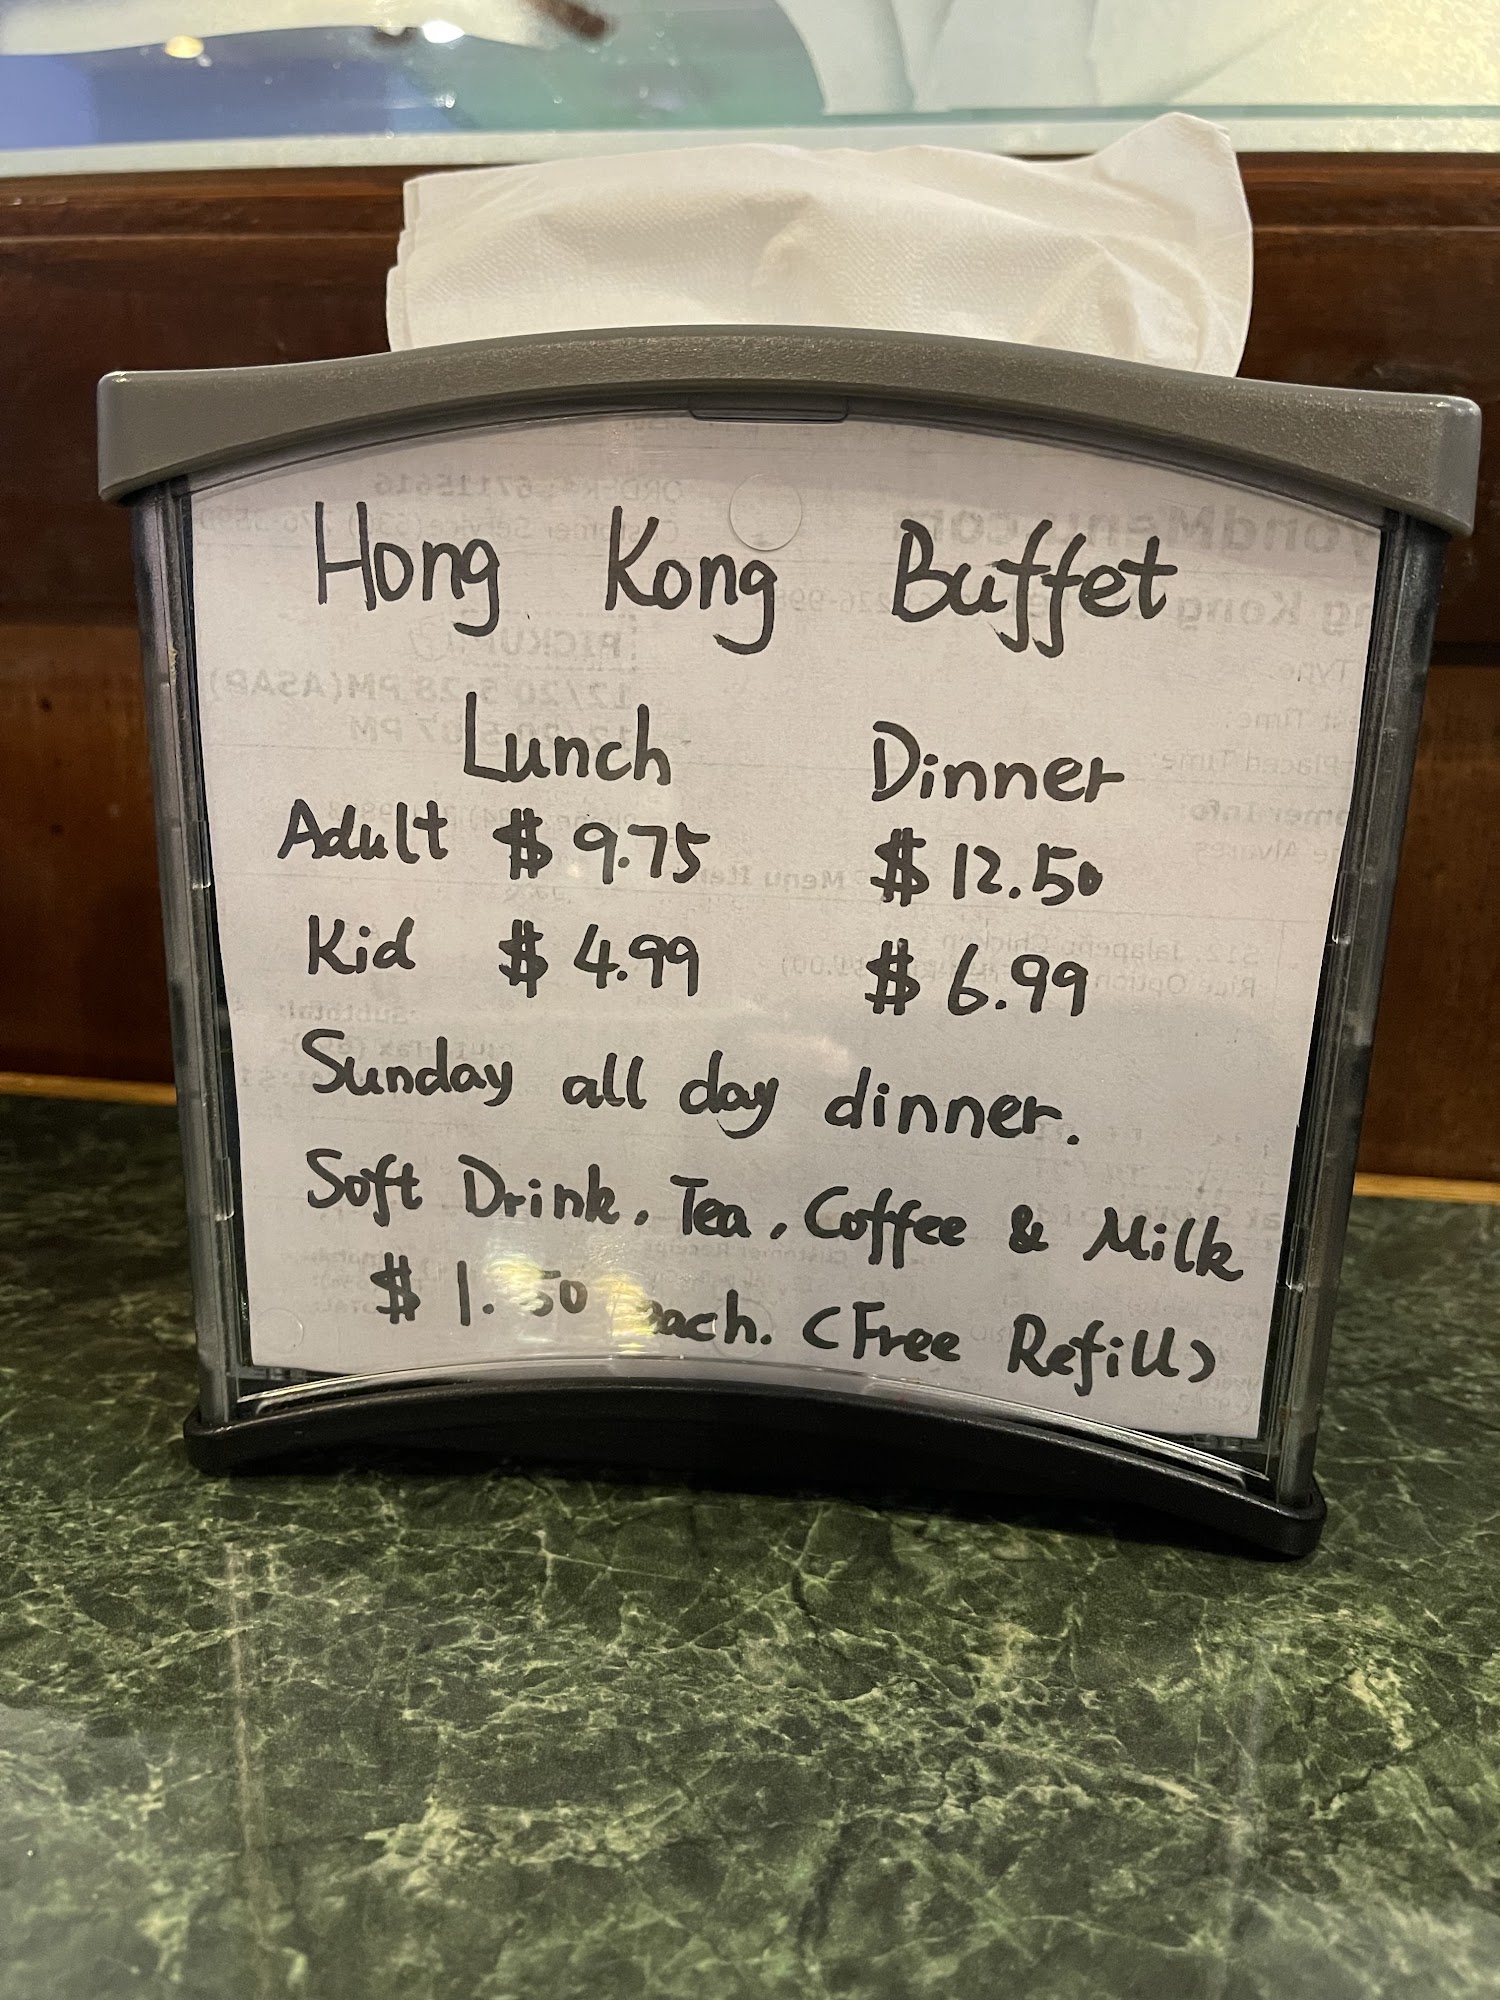 Hong Kong Buffet
Lunch Dinner
Adult $9.75 $12.50
Kid $4.99 $6.99
Sunday all day dinner.
Soft Drink, Tea, Coffee & Milk
$1.50 each. (Free Refill)